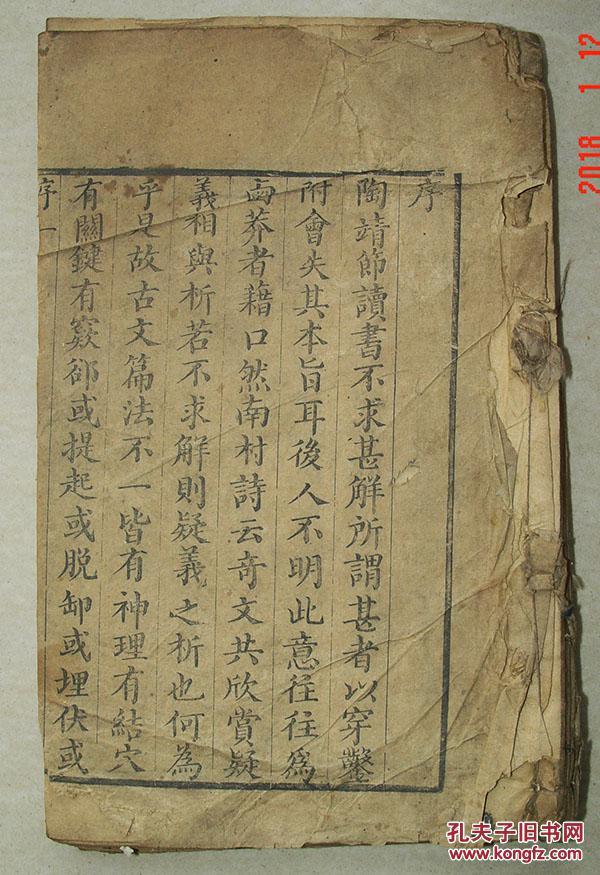 序
陶靖節讀書不求甚解所謂甚者以穿鑿
附會失其本旨耳後人不明此意往往爲
鹵莽者藉口然南村詩云奇文共欣賞疑
義相與析若不求解則疑義之析也何為
乎是故古文篇法不一皆有神理有結穴
有關鍵有窽郤或提起或脱卸或埋伏或
序 一
2018 1 12
孔夫子旧书网
www.kongfz.com